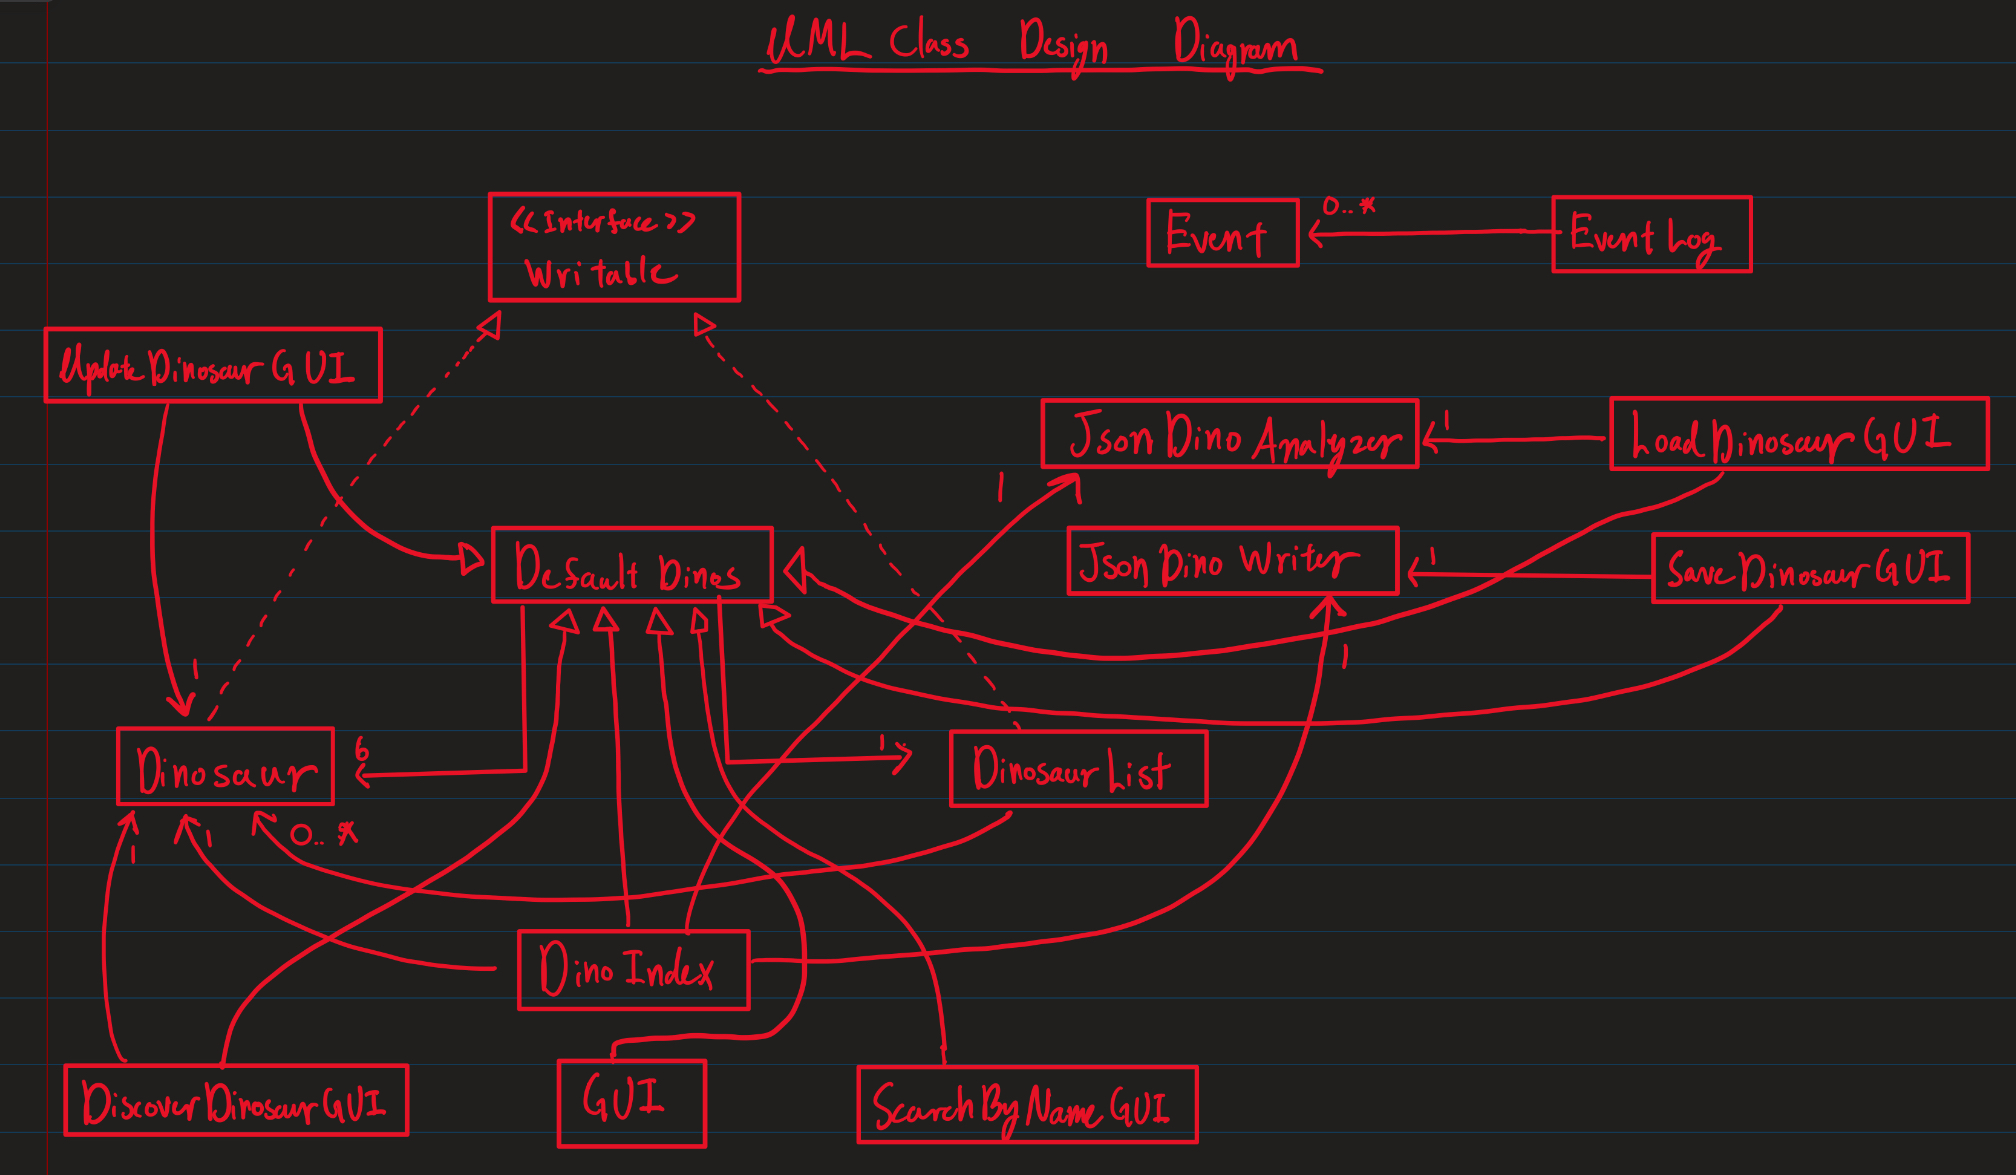 UML Class Design Diagram
<<Interface>>
Writable
Event
0..*
EventLog
UpdateDinosaurGUI
JsonDinoAnalyzer
1
LoadDinosaurGUI
1
DefaultDinos
JsonDinoWriter
1
SaveDinosaurGUI
1
1
Dinosaur
6
1
DinosaurList
1
1
0..*
DinoIndex
DiscoverDinosaurGUI
GUI
SearchByNameGUI